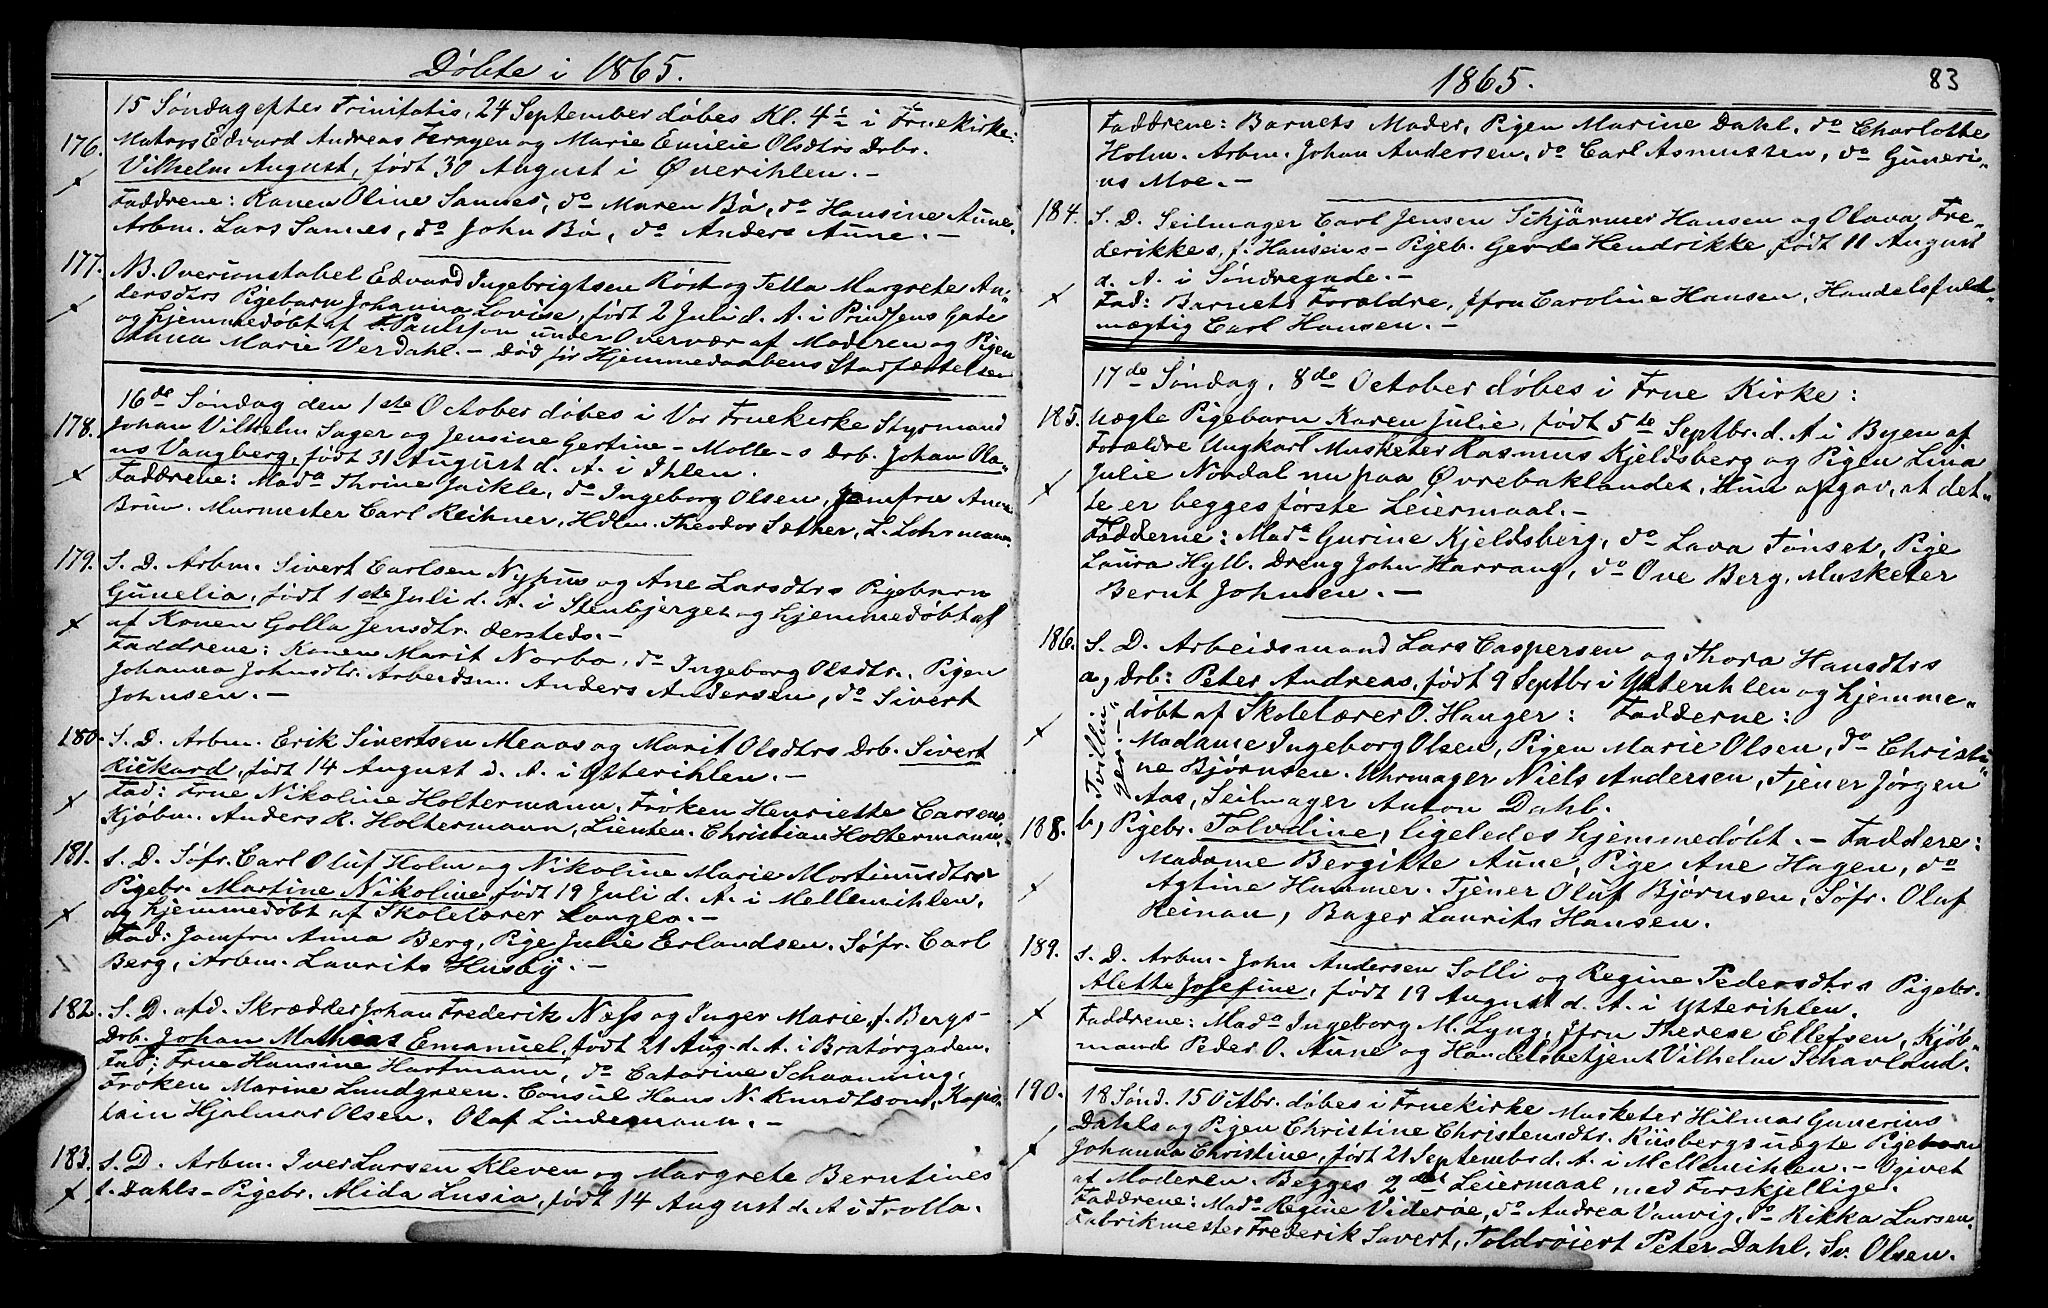 Döbte i 1865.
15 Søndag efter Trinitatis, 24 September døbes Kl. 4½ i Fruekirke:
176. Matros Edvard Andreas Ferayen og Marie Emilie Olsdtrs Drbr.
Vilhelm August, født 30 August i Øverihlen. –
x
Faddrene: Konen Oline Samnes, do Maren Bö, do Hansine Aune.
Arbm. Lars Samnes, do John Bö, do Anders Aune. –
177. N.B. Overconstabel Edvard Ingebrigtsen Röst og Tella Margrete An„
dersdtrs Pigebarn Johanna Lovise, født 2 Juli d. A. i Prindsens Gate
x
og hjemmedöbt af Paulsson under Overvær af Moderen og Pigen
Anna Marie Verdahl. – död før Hjemmedaabens Stadfæstelse
16de Søndag den 1ste October döbes i Vor Fruekerke Styrmand
178. Johan Vilhelm Sager og Jensine Gertine – Molle – s Drb. Johan Ola„
us Vangberg, født 31 August d. A. i Ihlen.
x
Faddrene: Mada Thrine Jaikle, do Ingeborg Olsen, Jomfru Anne
Brun. Murmester Carl Reihner, Hdlm. Theodor Sæther, L. Lohrmann.
179. S. D. Arbm. Sivert Carlsen Nypus og Ane Larsdtrs Pigebarn
Gunelia, født 1ste Juli d. A. i Stenbjerget og hjemmedöbt af
x
af Konen Golla Jensdtr. Dersteds. –
Faddrene: Konen Marit Norbo, do Ingeborg Olsdtr., Pigen
Johanna Johnsdtr. Arbeidsm. Anders Andersen, do Sivert
Johnsen. –
180. S. D. Arbm. Erik Sivertsen Meaas og Marit Olsdtrs Drb. Sivert
Rickard, født 14 August d. A. i Ytterihlen. –
x
Fad: Frue Nikoline Holtermann, Fröken Henriette Carsens
Kjøbm. Anders R. Holtermann, Lieuten. Christian Holtermann.
181. S. D. Søfr. Carl Oluf Holm og Nikoline Marie Martinusdtrs
Pigebr. Martine Nikoline, født 19 Juli d. A. i Mellemihlen,
x
og hjemmedöbt af Skolelærer Langeo. –
Fad: Jomfru Anna Berg, Pige Julie Erlandsen. Søfr. Carl
Berg, Arbm. Laurits Husby. –
182. S. D. afd. Skrædder Johan Frederik Næss og Inger Marie, f. Bergs –
Drb. Johan Mathias Emanuel, født 21 Aug. d. A. i Bratörgaden.
Fad: Frue Hansine Hartmann, do Catarine Schaanning,
Fröken Marine Lundgreen. Consul Hans N. Knudtson, Kapi„
tain Hjalmar Olsen. Oluf Lindemann. –
183. S. D. Arbm. Iver Larsen Kleven og Margrete Berntines
x
f. Dahls – Pigebr. Alida Lusia, født 14 August d. A i Trolla.
1865.
83
Faddrene: Barnets Moder, Pigen Marine Dahl, do Charlotte
Holm. Arbm. Johan Andersen, do Carl Asmussen, do Guneri„
us Moe. –
184. S. D. Seilmager Carl Jensen Schjärmer Hansen og Olava Fre„
derikkes, f. Hansens – Pigeb. Gerda Hendrikke, født 11 August
d. A. i Søndregade. –
x
Fad: Barnets Foraldre, Jfru Caroline Hansen, Handelsfuld„
mægtig Carl Hansen. –
17de Søndag, 8de October döbes i Frue Kirke:
185. Uægte Pigebarn Karen Julie, født 5te Septbr. d. A i Byen af
Forældre Ungkarl Musketer Rasmus Kjeldsberg og Pigen Lina
x
Julie Nordal nu paa Øvrebaklandet, Hun opgav, at det„
te er begges förste Leiermaal. –
Fadderne: Mada Gurine Kjeldsberg, do Lava Tønset, Pige
Laura Hyll. Dreng John Harrang, do Ove Berg, Musketer
Bernt Johnsen. –
186. S. D. Arbeidsmand Lars Caspersen og Thora Hansdtrs
a, Drb: Peter Andreas, født 9 Septbr i Ytterihlen og hjemme„
x
Tvillin„
ger: –
döbt af Skolelærer O. Hanger: Fadderne:
Madame Ingeborg Olsen, Pigen Marie Olsen, do Christi„
ne Bjørnsen. Uhrmager Niels Andersen, Tjener Jörgen
Aas, Seilmager Anton Dahl.
188. b, Pigebr. Tolvdine, ligeledes hjemmedöbt. – Faddere:
Madame Bergitte Aune, Pige Ane Hagen, do
x
Agtine Hammer. Tjener Oluf Bjørnsen, Søfr. Oluf
Reinan, Bager Laurits Hansen.
189. S. D. Arbm – John Andersen Solli og Regine Pedersdtrs Pigebr.
Alette Josefine, født 19 August d. A. i Ytterihlen.
x
Faddrene: Mada Ingeborg M. Lyng, Jfru Therese Ellefsen, Kjöb„
mand Peder O. Aune og Handelsbetjent Vilhelm Schavland.
190. 18 Sønd. 15 Octbr. döbes i Fruekirke Musketer Hilmar Gunerius
Dahls og Pigen Christine Christensdtr. Riisbergs uægte Pigebarn
x
Johanna Christine, født 21 Septembr d. A. i Mellemihlen. – Opgivet
af Moderen. Begges 2det Leiermaal med Forskjellige.
Faddrene: Mada Regine Videröe, do Andrea Vanvig, do Rikka Larsen.
Fabrikmester Frederik Savert, Toldröiert Peter Dahl, Sv. Olsen.